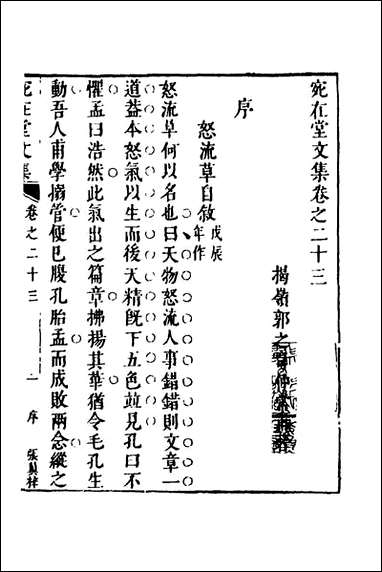 宛在堂文集卷之二十三
揭嶺郭之
序
怒流草自敘戊辰年作
怒流草何以名也曰天物怒流人事錯錯則文章一
道葢本怒氣以生而後天精旣下五色竝見孔曰不
懼孟曰浩然此氣出之篇章拂揚其華猶令毛孔生
動吾人甫學搦管便已腹孔胎孟而成敗兩念縱之
宛在堂文集 卷之二十三 一 序 張